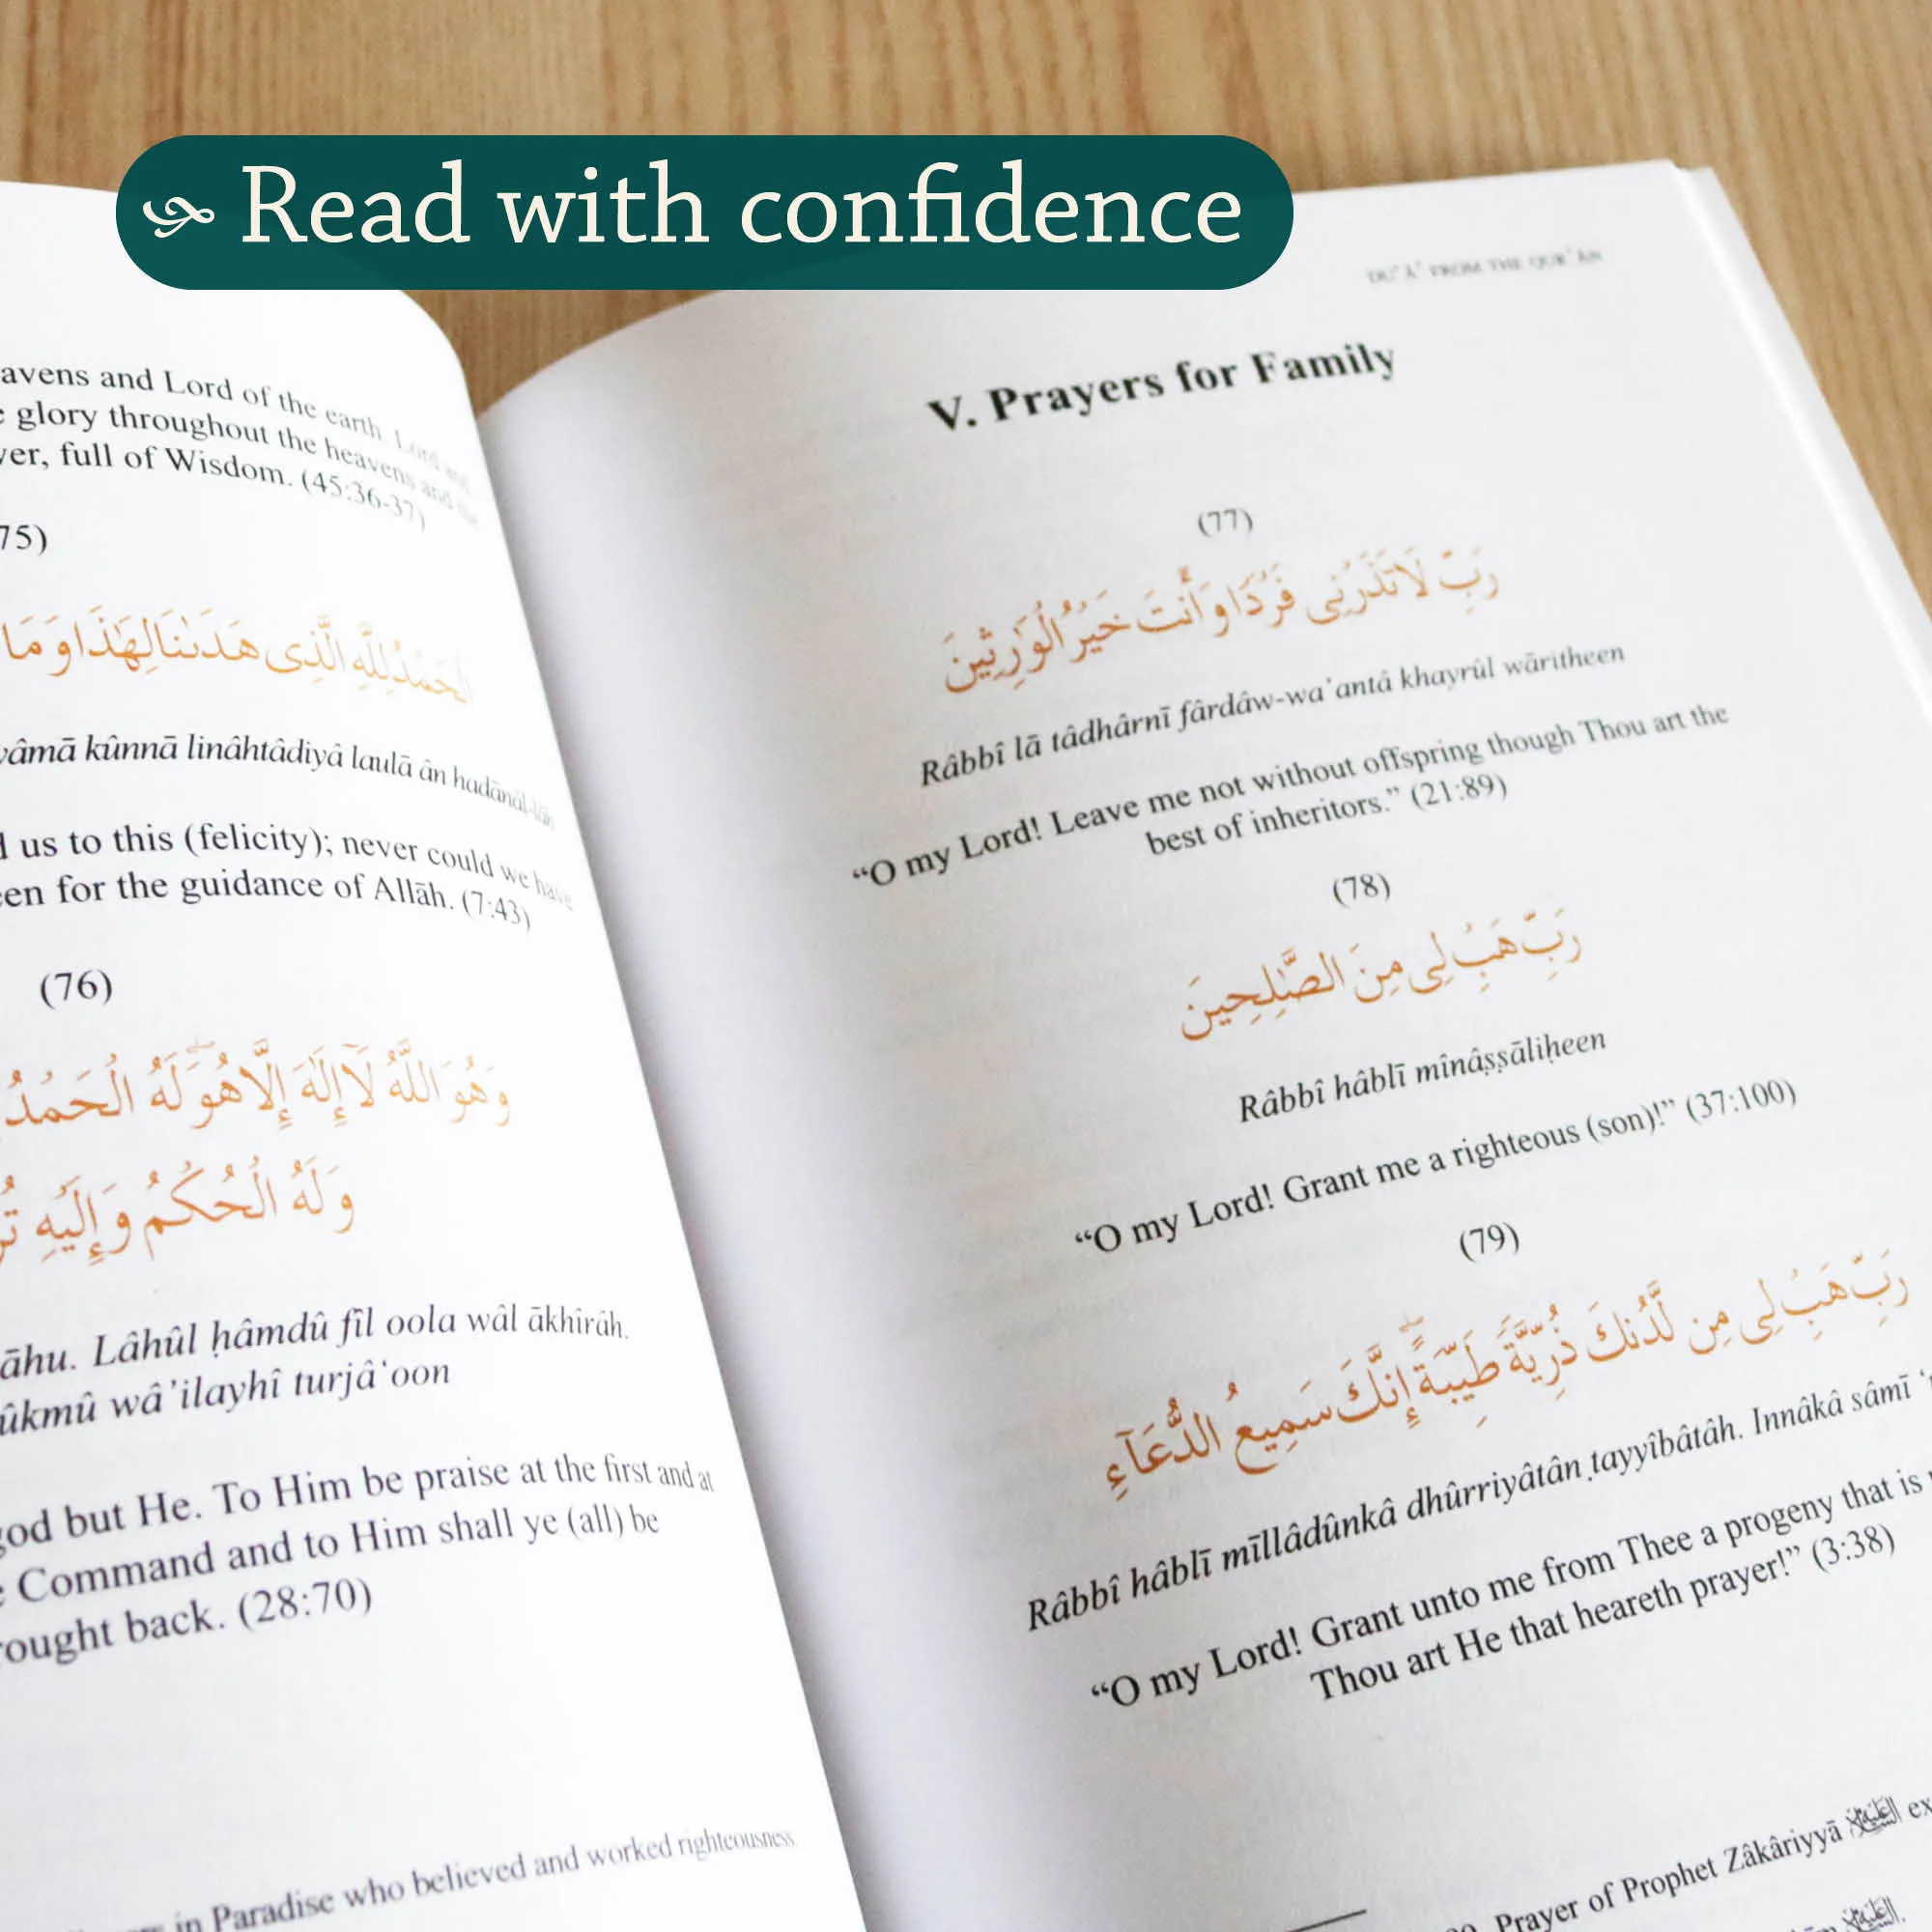 Read with confidence
avens and Lord of the earth. Lord and
glory throughout the heavens and the
ver, full of Wisdom. (45:36-37)
75)
الْحَمْدُ لِلَّهِ الَّذِى هَدَىٰنَا لِهَٰذَا وَمَا
wâmā kûnnā linâhtâdiyâ laulā ân hadānâl-lāh
us to this (felicity); never could we have
een for the guidance of Allāh. (7:43)
(76)
وَهُوَ اللَّهُ لَآ إِلَٰهَ إِلَّا هُوَ ۖ لَهُ الْحَمْدُ
وَلَهُ الْحُكْمُ وَإِلَيْهِ
āhu. Lâhûl ḥâmdû fîl oola wâl ākhîrâh.
ûkmû wâ’ilayhî turjâ‘oon
god but He. To Him be praise at the first and at
Command and to Him shall ye (all) be
rought back. (28:70)
in Paradise who believed and worked righteousness.
DU‘Ā’ FROM THE QUR’ĀN
V. Prayers for Family
(77)
رَبِّ لَا تَذَرْنِى فَرْدًا وَأَنتَ خَيْرُ الْوَٰرِثِينَ
Râbbî lā tâdhârnī fârdâw-wa’antâ khayrûl wāritheen
“O my Lord! Leave me not without offspring though Thou art the
best of inheritors.” (21:89)
(78)
رَبِّ هَبْ لِى مِنَ الصَّٰلِحِينَ
Râbbî hâblī mînâṣṣāliḥeen
“O my Lord! Grant me a righteous (son)!” (37:100)
(79)
رَبِّ هَبْ لِى مِن لَّدُنكَ ذُرِّيَّةً طَيِّبَةً ۖ إِنَّكَ سَمِيعُ الدُّعَآءِ
Râbbî hâblī mīllâdûnkâ dhûrriyâtân ṭayyîbâtâh. Innâkâ sâmī‘
“O my Lord! Grant unto me from Thee a progeny that is
Thou art He that heareth prayer!” (3:38)
Prayer of Prophet Zâkâriyyā ex